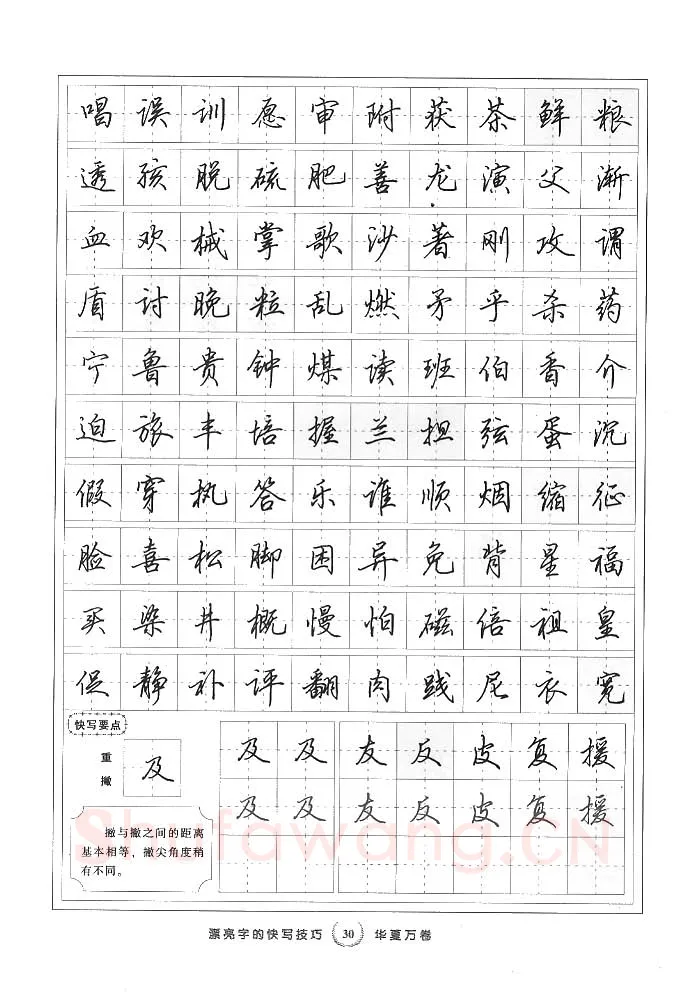 唱误训愿审附获茶鲜粮
透孩脱硫肥善龙演父渐
血欢械掌歌沙著刚攻谓
盾讨晚粒乱燃矛乎杀药
宁鲁贵钟煤读班伯香介
迫旅丰培握兰担弦蛋沉
假穿执答乐谁顺烟缩征
脸喜松脚困异免背星福
买染井概慢怕磁倍祖皇
促静补评翻肉践尼衣宽
快写要点
重撇
及
及及友反皮复援
及及友反皮复援
撇与撇之间的距离
基本相等，撇尖角度稍
有不同。
Shufawang.CN
漂亮字的快写技巧 30 华夏万卷